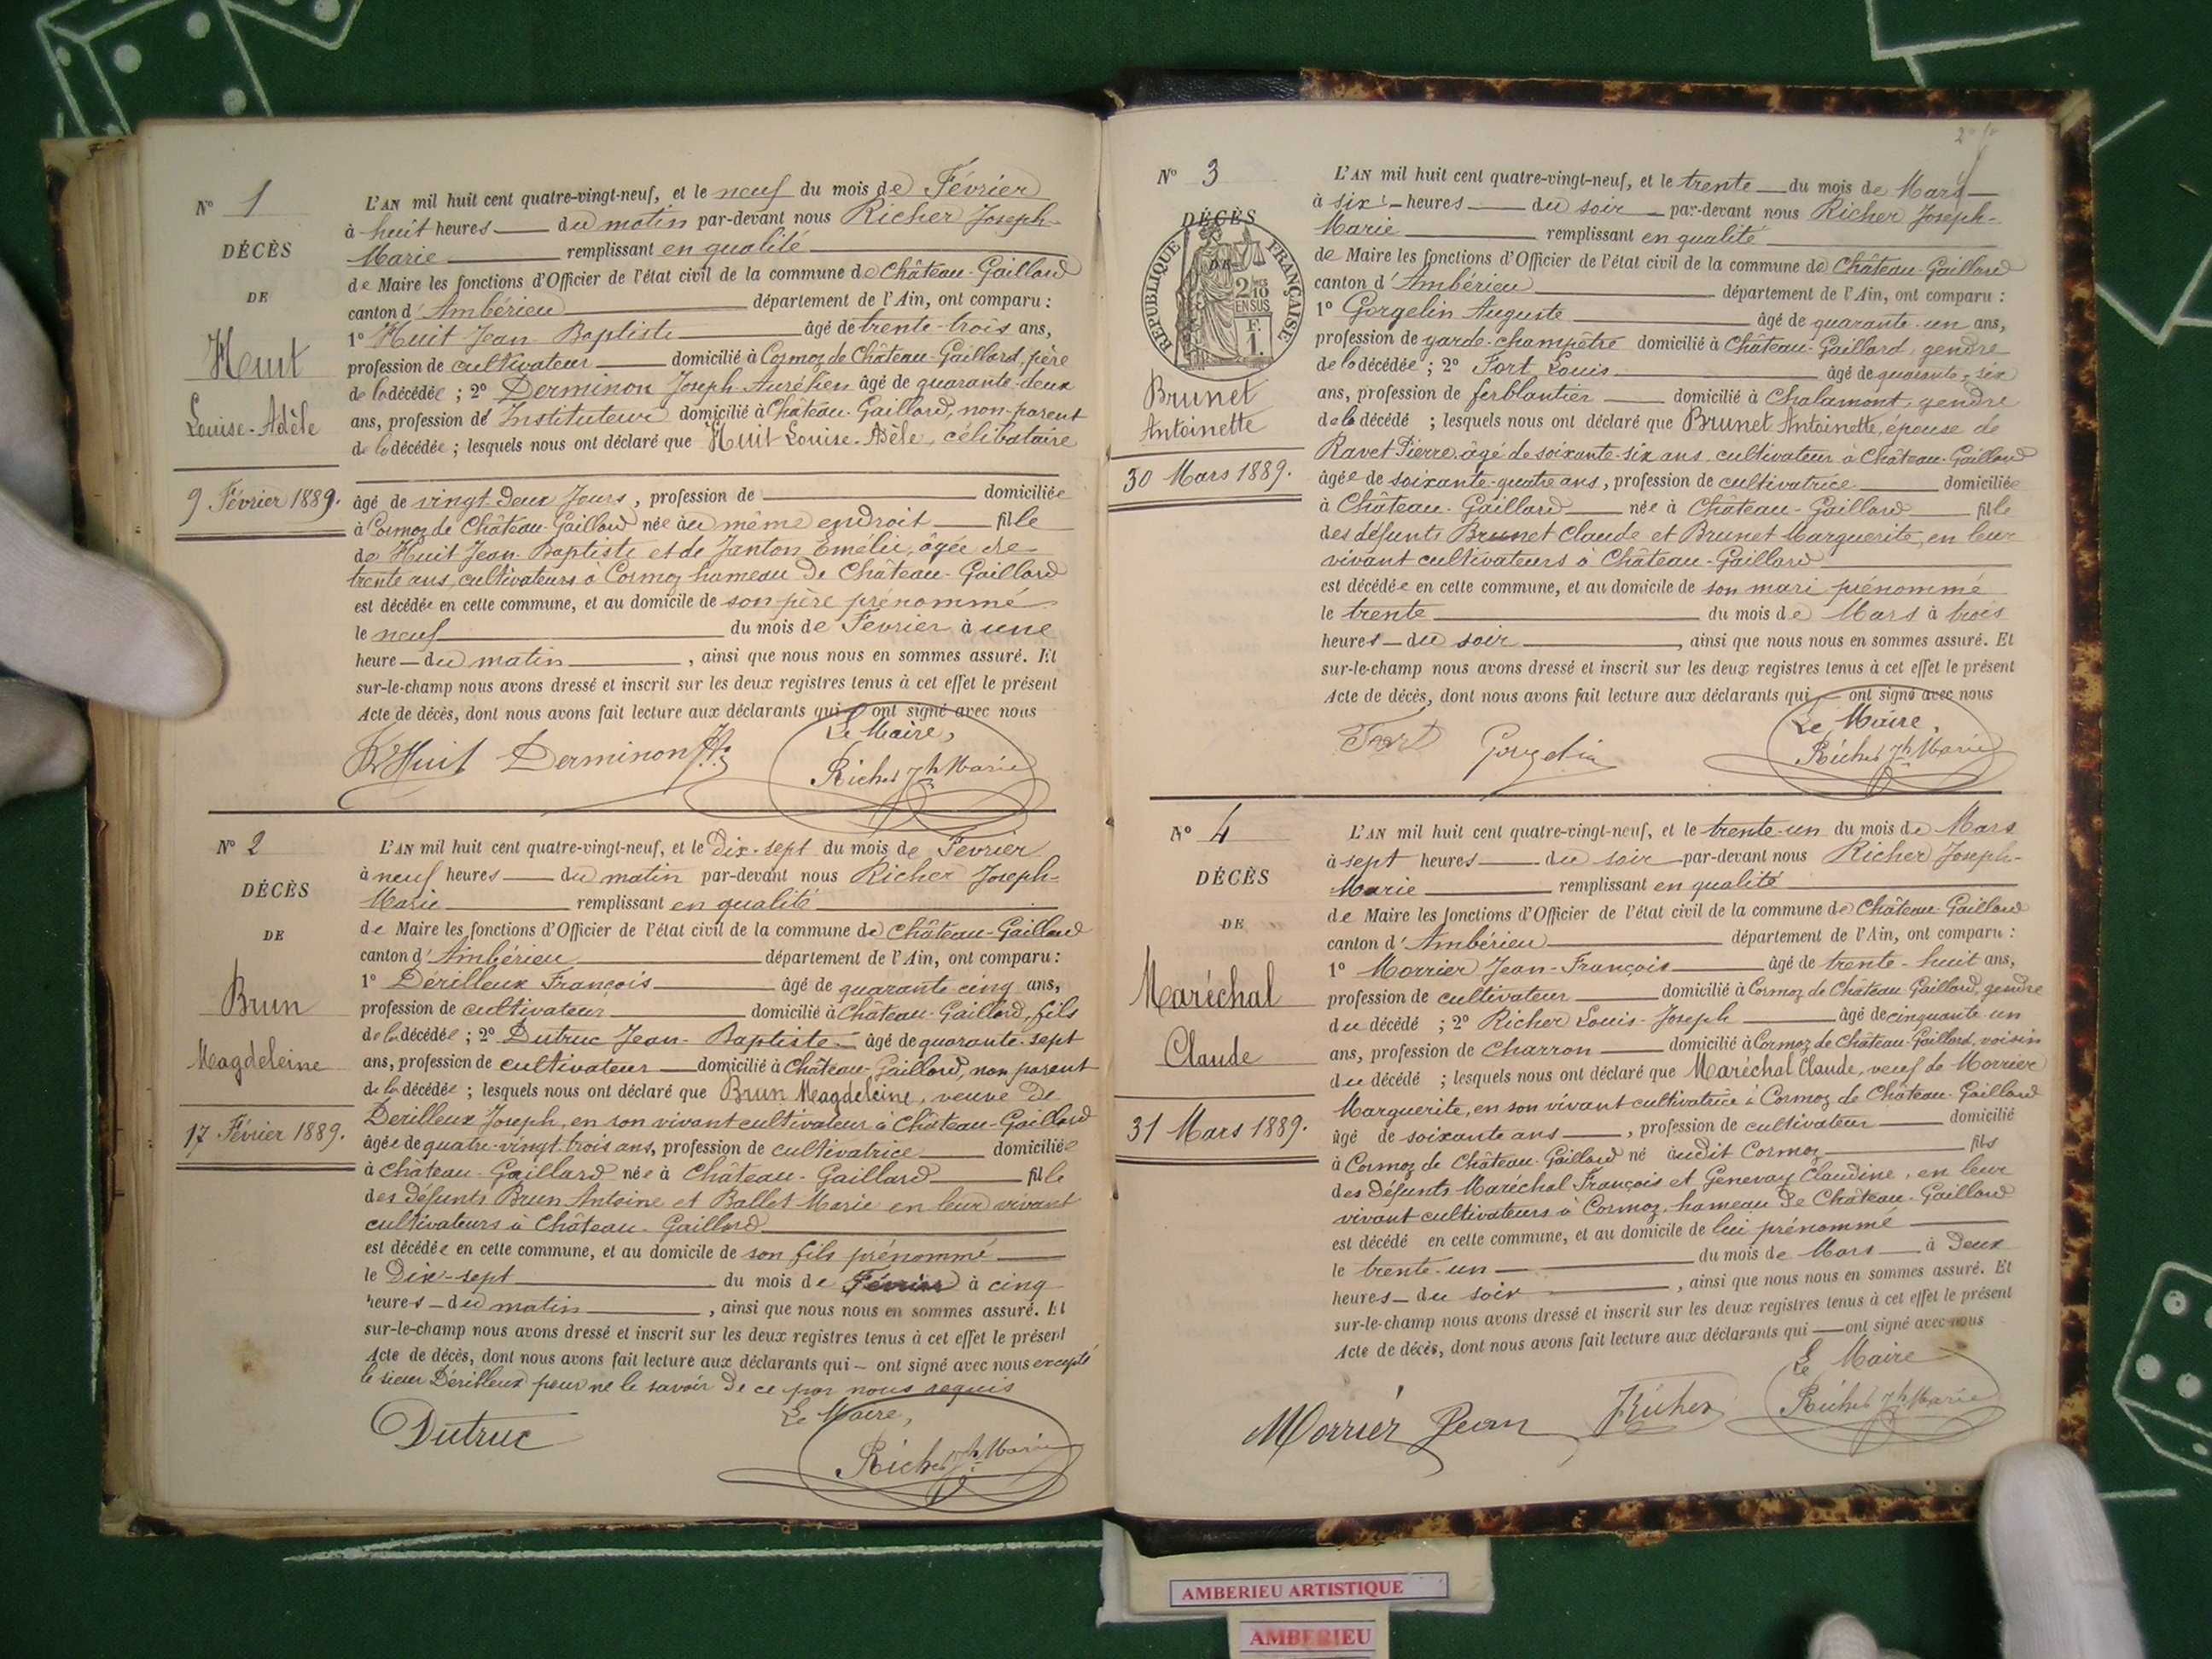 N° 1
DÉCÈS
DE
Huit
Louise-Adèle
9 Février 1889.
L'AN mil huit cent quatre-vingt-neuf, et le neuf du mois de Février
à huit heures du matin par-devant nous Richer Joseph-
Marie remplissant en qualité
de Maire les fonctions d'Officier de l'état civil de la commune de Château-Gaillard
canton d'Ambérieu département de l'Ain, ont comparu :
1° Huit Jean Baptiste âgé de trente-trois ans,
profession de cultivateur domicilié à Cormoz de Château-Gaillard, père
de la décédée ; 2° Derminon Joseph-Aurélien âgé de quarante-deux
ans, profession d'Instituteur domicilié à Château-Gaillard, non-parent
de la décédée ; lesquels nous ont déclaré que Huit Louise-Adèle, célibataire
âgé de vingt-deux Jours, profession de domiciliée
à Cormoz de Château-Gaillard née au même endroit fille
de Huit Jean-Baptiste et de Janton Emélie, âgée de
trente ans, cultivateurs à Cormoz hameau de Château-Gaillard
est décédée en cette commune, et au domicile de son père prénommé
le neuf du mois de Février à une
heure du matin, ainsi que nous nous en sommes assuré. Et
sur-le-champ nous avons dressé et inscrit sur les deux registres tenus à cet effet le présent
Acte de décès, dont nous avons fait lecture aux déclarants qui ont signé avec nous
Le Maire,
Huit Derminon Richer Jh Marie
N° 2
DÉCÈS
DE
Brun
Magdeleine
17 Février 1889.
L'AN mil huit cent quatre-vingt-neuf, et le Dix-sept du mois de Février
à neuf heures du matin par-devant nous Richer Joseph-
Marie remplissant en qualité
de Maire les fonctions d'Officier de l'état civil de la commune de Château-Gaillard
canton d'Ambérieu département de l'Ain, ont comparu :
1° Dérilleux François âgé de quarante cinq ans,
profession de cultivateur domicilié à Château-Gaillard, fils
de la décédée ; 2° Dutruc Jean-Baptiste âgé de quarante-sept
ans, profession de cultivateur domicilié à Château-Gaillard, non parent
de la décédée ; lesquels nous ont déclaré que Brun Magdeleine, veuve de
Derilleux Joseph, en son vivant cultivateur à Château-Gaillard
âgée de quatre-vingt trois ans, profession de cultivatrice domiciliée
à Château-Gaillard née à Château-Gaillard fille
des défunts Brun Antoine et Ballet Marie en leur vivant
cultivateurs à Château-Gaillard
est décédée en cette commune, et au domicile de son fils prénommé
le Dix-sept du mois de Février à cinq
heures du matin, ainsi que nous nous en sommes assuré. Et
sur-le-champ nous avons dressé et inscrit sur les deux registres tenus à cet effet le présent
Acte de décès, dont nous avons fait lecture aux déclarants qui ont signé avec nous excepté
le sieur Dérilleux pour ne le savoir de ce par nous requis
Le Maire,
Dutruc Richer Jh Marie
N° 3
DÉCÈS
DE
RÉPUBLIQUE FRANÇAISE
2/10
EN SUS
F.
1.
Brunet
Antoinette
30 Mars 1889.
L'AN mil huit cent quatre-vingt-neuf, et le trente du mois de Mars
à six heures du soir par-devant nous Richer Joseph-
Marie remplissant en qualité
de Maire les fonctions d'Officier de l'état civil de la commune de Château-Gaillard
canton d'Ambérieu département de l'Ain, ont comparu :
1° Gorgelin Auguste âgé de quarante-un ans,
profession de garde-champêtre domicilié à Château-Gaillard, gendre
de la décédée ; 2° Fort Louis âgé de quarante-six
ans, profession de ferblantier domicilié à Chalamont, gendre
de la décédé ; lesquels nous ont déclaré que Brunet Antoinette, épouse de
Ravet Pierre, âgé de soixante-six ans, cultivateur à Château-Gaillard
âgée de soixante-quatre ans, profession de cultivatrice domiciliée
à Château-Gaillard née à Château-Gaillard fille
des défunts Brunet Claude et Brunet Marguerite, en leur
vivant cultivateurs à Château-Gaillard
est décédée en cette commune, et au domicile de son mari prénommé
le trente du mois de Mars à trois
heures du soir, ainsi que nous nous en sommes assuré. Et
sur-le-champ nous avons dressé et inscrit sur les deux registres tenus à cet effet le présent
Acte de décès, dont nous avons fait lecture aux déclarants qui ont signé avec nous
Le Maire,
Fort Gorgelin Richer Jh Marie
N° 4
DÉCÈS
DE
Maréchal
Claude
31 Mars 1889.
L'AN mil huit cent quatre-vingt-neuf, et le trente-un du mois de Mars
à sept heures du soir par-devant nous Richer Joseph-
Marie remplissant en qualité
de Maire les fonctions d'Officier de l'état civil de la commune de Château-Gaillard
canton d'Ambérieu département de l'Ain, ont comparu :
1° Morrier Jean-François âgé de trente-huit ans,
profession de cultivateur domicilié à Cormoz de Château-Gaillard, gendre
du décédé ; 2° Richer Louis-Joseph âgé de cinquante un
ans, profession de Charron domicilié à Cormoz de Château-Gaillard, voisin
du décédé ; lesquels nous ont déclaré que Maréchal Claude, veuf de Morrier
Marguerite, en son vivant cultivatrice à Cormoz de Château-Gaillard
âgé de soixante ans, profession de cultivateur domicilié
à Cormoz de Château-Gaillard né audit Cormoz fils
des défunts Maréchal François et Genevay Claudine, en leur
vivant cultivateurs à Cormoz, hameau de Château-Gaillard
est décédé en cette commune, et au domicile de lui prénommé
le trente-un du mois de Mars à Deux
heures du soir, ainsi que nous nous en sommes assuré. Et
sur-le-champ nous avons dressé et inscrit sur les deux registres tenus à cet effet le présent
Acte de décès, dont nous avons fait lecture aux déclarants qui ont signé avec nous
Le Maire
Morrier Jean Richer Richer Jh Marie
AMBERIEU ARTISTIQUE
AMBERIEU